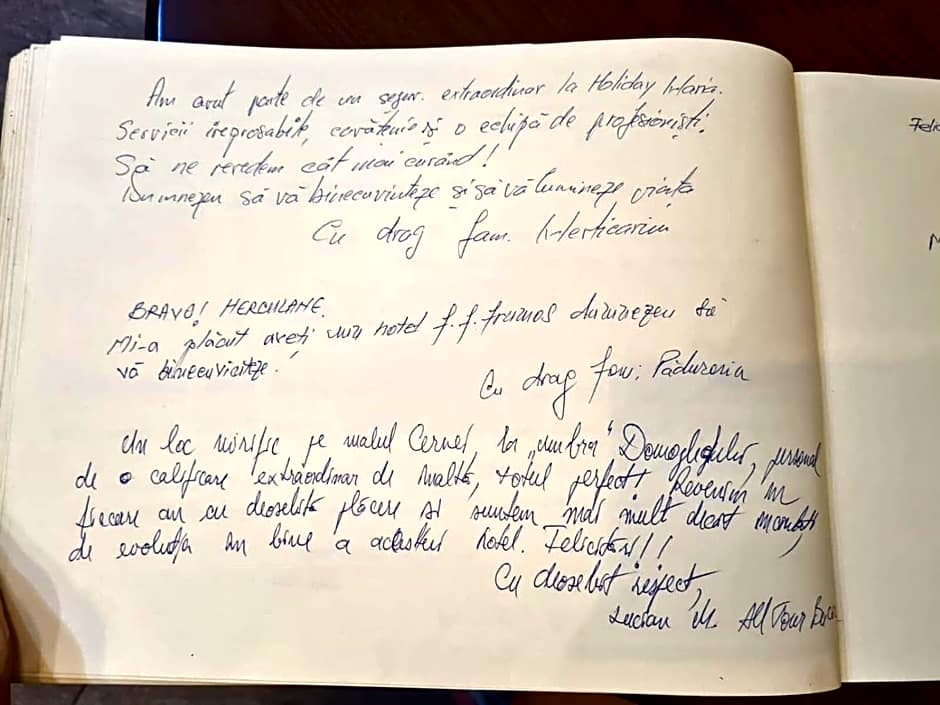 Am avut parte de un sejur. extraordinar la Holiday Maria.
Servicii ireprosabile, curățenie și o echipă de profesioniști.
Să ne revedem cât mai curând!
Dumnezeu să vă binecuvinteze și să vă lumineze viața
Cu drag fam.
BRAVO! HERCULANE.
Mi-a plăcut aveți un hotel f.f. frumos dumnezeu să
vă binecuvinteze.
Cu drag fam; Păduraria
Un loc mirific pe malul Cernei, la "umbra" Domogledului, personal
de o calificare extraordinar de înaltă, totul perfect! Revenim în
fiecare an cu deosebită plăcere și suntem mai mult decât încântați
de evoluția în bine a acestui hotel. Felicitări!!
Cu deosebit respect,
Lucian M. All Tour
Felic
M